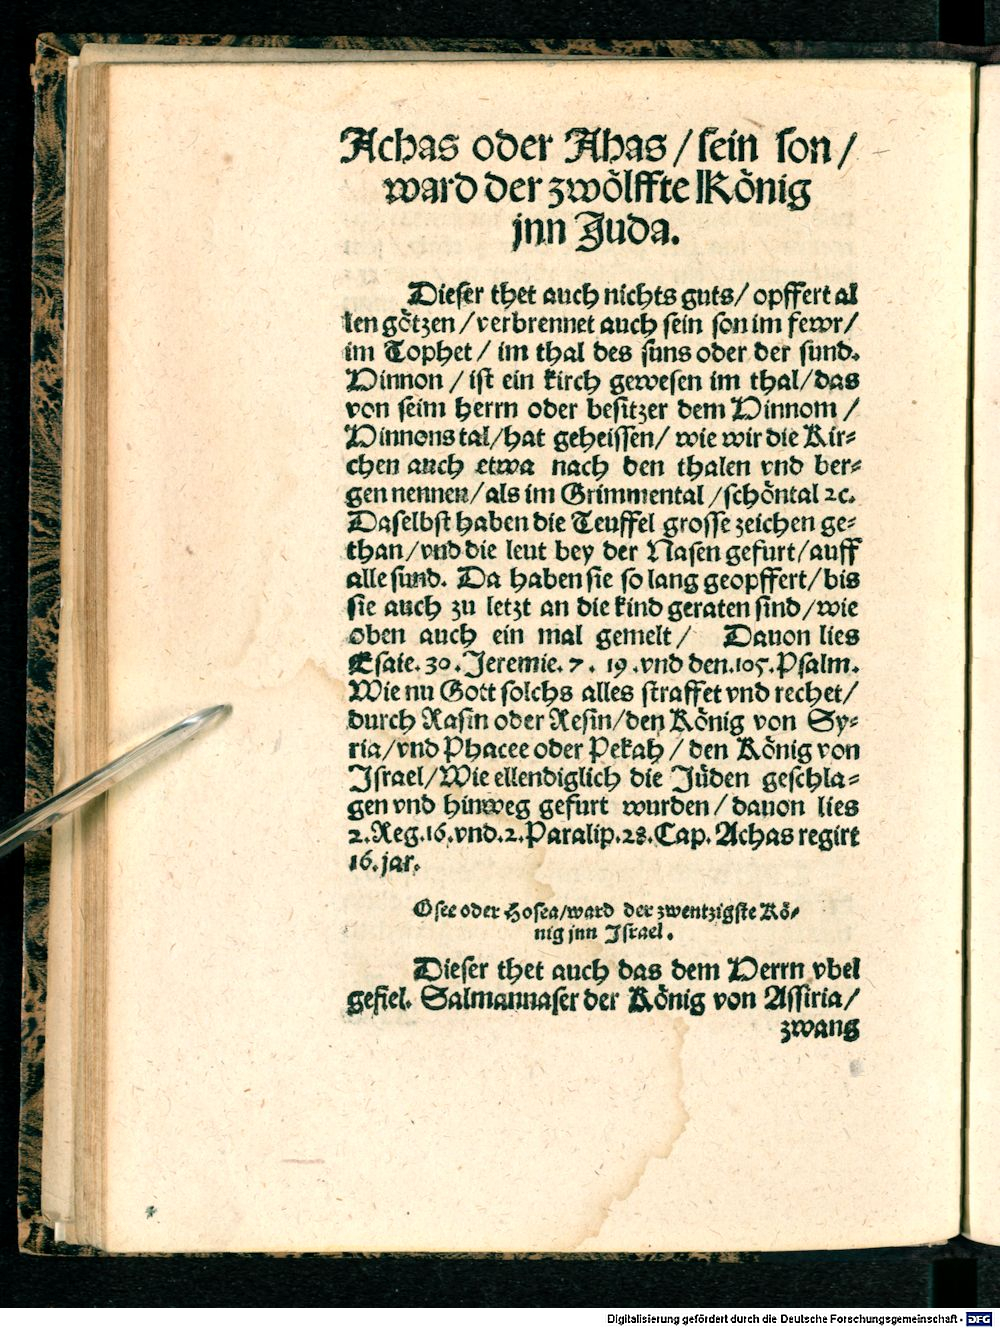 Achas oder Ahas / sein son /
ward der zwölffte König
jnn Juda.
Dieser thet auch nichts guts / opffert al
len götzen / verbrennet auch sein son im fewr /
im Tophet / im thal des suns oder der sund.
Hinnon / ist ein kirch gewesen im thal / das
von seim herrn oder besitzer dem Hinnom /
Hinnons tal / hat geheissen / wie wir die Kir⸗
chen auch etwa nach den thalen vnd ber⸗
gen nennen / als im Grimmental / schöntal ꝛc.
Daselbst haben die Teuffel grosse zeichen ge⸗
than / vnd die leut bey der Nasen gefurt / auff
alle sund. Da haben sie so lang geopffert / bis
sie auch zu letzt an die kind geraten sind / wie
oben auch ein mal gemelt / Dauon lies
Esaie. 30. Jeremie. 7. 19. vnd den. 105. Psalm.
Wie nu Gott solchs alles straffet vnd rechet /
durch Rasin oder Resin / den König von Sy⸗
ria / vnd Phacee oder Pekah / den König von
Jsrael / Wie ellendiglich die Jüden geschla⸗
gen vnd hinweg gefurt wurden / dauon lies
2. Reg. 16. vnd. 2. Paralip. 28. Cap. Achas regirt
16. jar.
Osee oder Hosea / ward der zwentzigste Kö⸗
nig jnn Jsrael.
Dieser thet auch das dem Herrn vbel
gefiel. Salmannaser der König von Assiria /
zwang
Digitalisierung gefördert durch die Deutsche Forschungsgemeinschaft - DFG